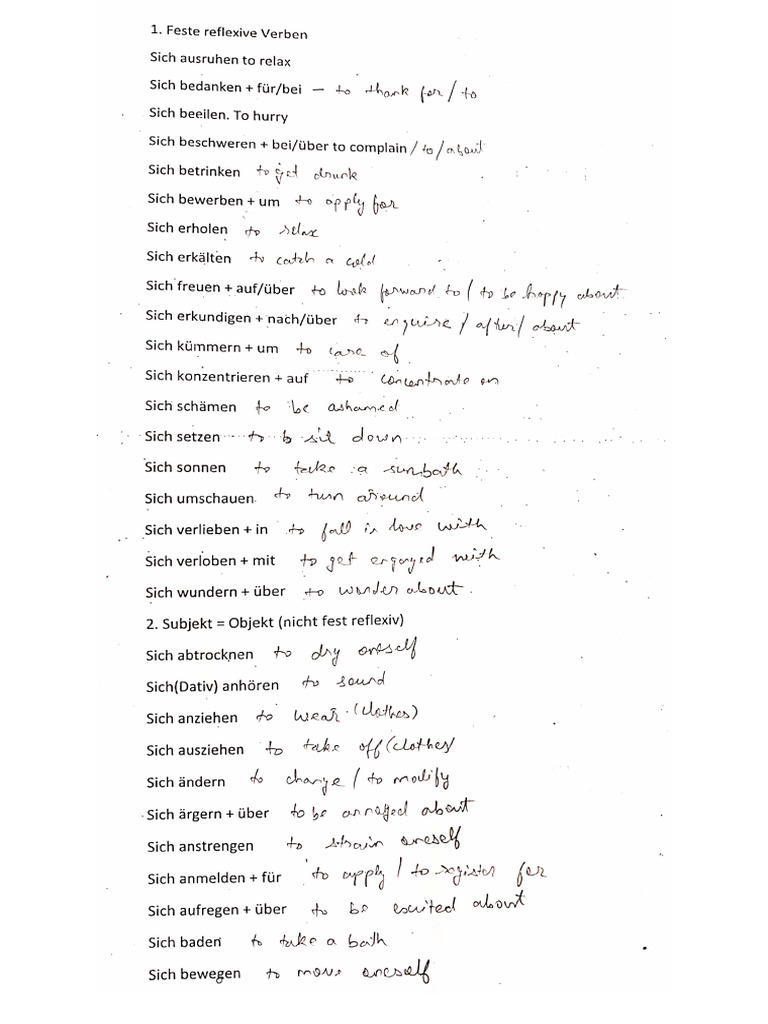 1. Feste reflexive Verben
Sich ausruhen to relax
Sich bedanken + für/bei – to thank for / to
Sich beeilen. To hurry
Sich beschweren + bei/über to complain / to / about
Sich betrinken to get drunk
Sich bewerben + um to apply for
Sich erholen to relax
Sich erkälten to catch a cold
Sich freuen + auf/über to look forward to / to be happy about
Sich erkundigen + nach/über to enquire / after / about
Sich kümmern + um to care of
Sich konzentrieren + auf to concentrate on
Sich schämen to be ashamed
Sich setzen to b sit down
Sich sonnen to take a sunbath
Sich umschauen to turn around
Sich verlieben + in to fall in love with
Sich verloben + mit to get engaged with
Sich wundern + über to wonder about.
2. Subjekt = Objekt (nicht fest reflexiv)
Sich abtrocknen to dry oneself
Sich(Dativ) anhören to sound
Sich anziehen to wear (clothes)
Sich ausziehen to take off (clothes)
Sich ändern to change / to modify
Sich ärgern + über to be annoyed about
Sich anstrengen to strain oneself
Sich anmelden + für to apply / to register for
Sich aufregen + über to be excited about
Sich baden to take a bath
Sich bewegen to move oneself